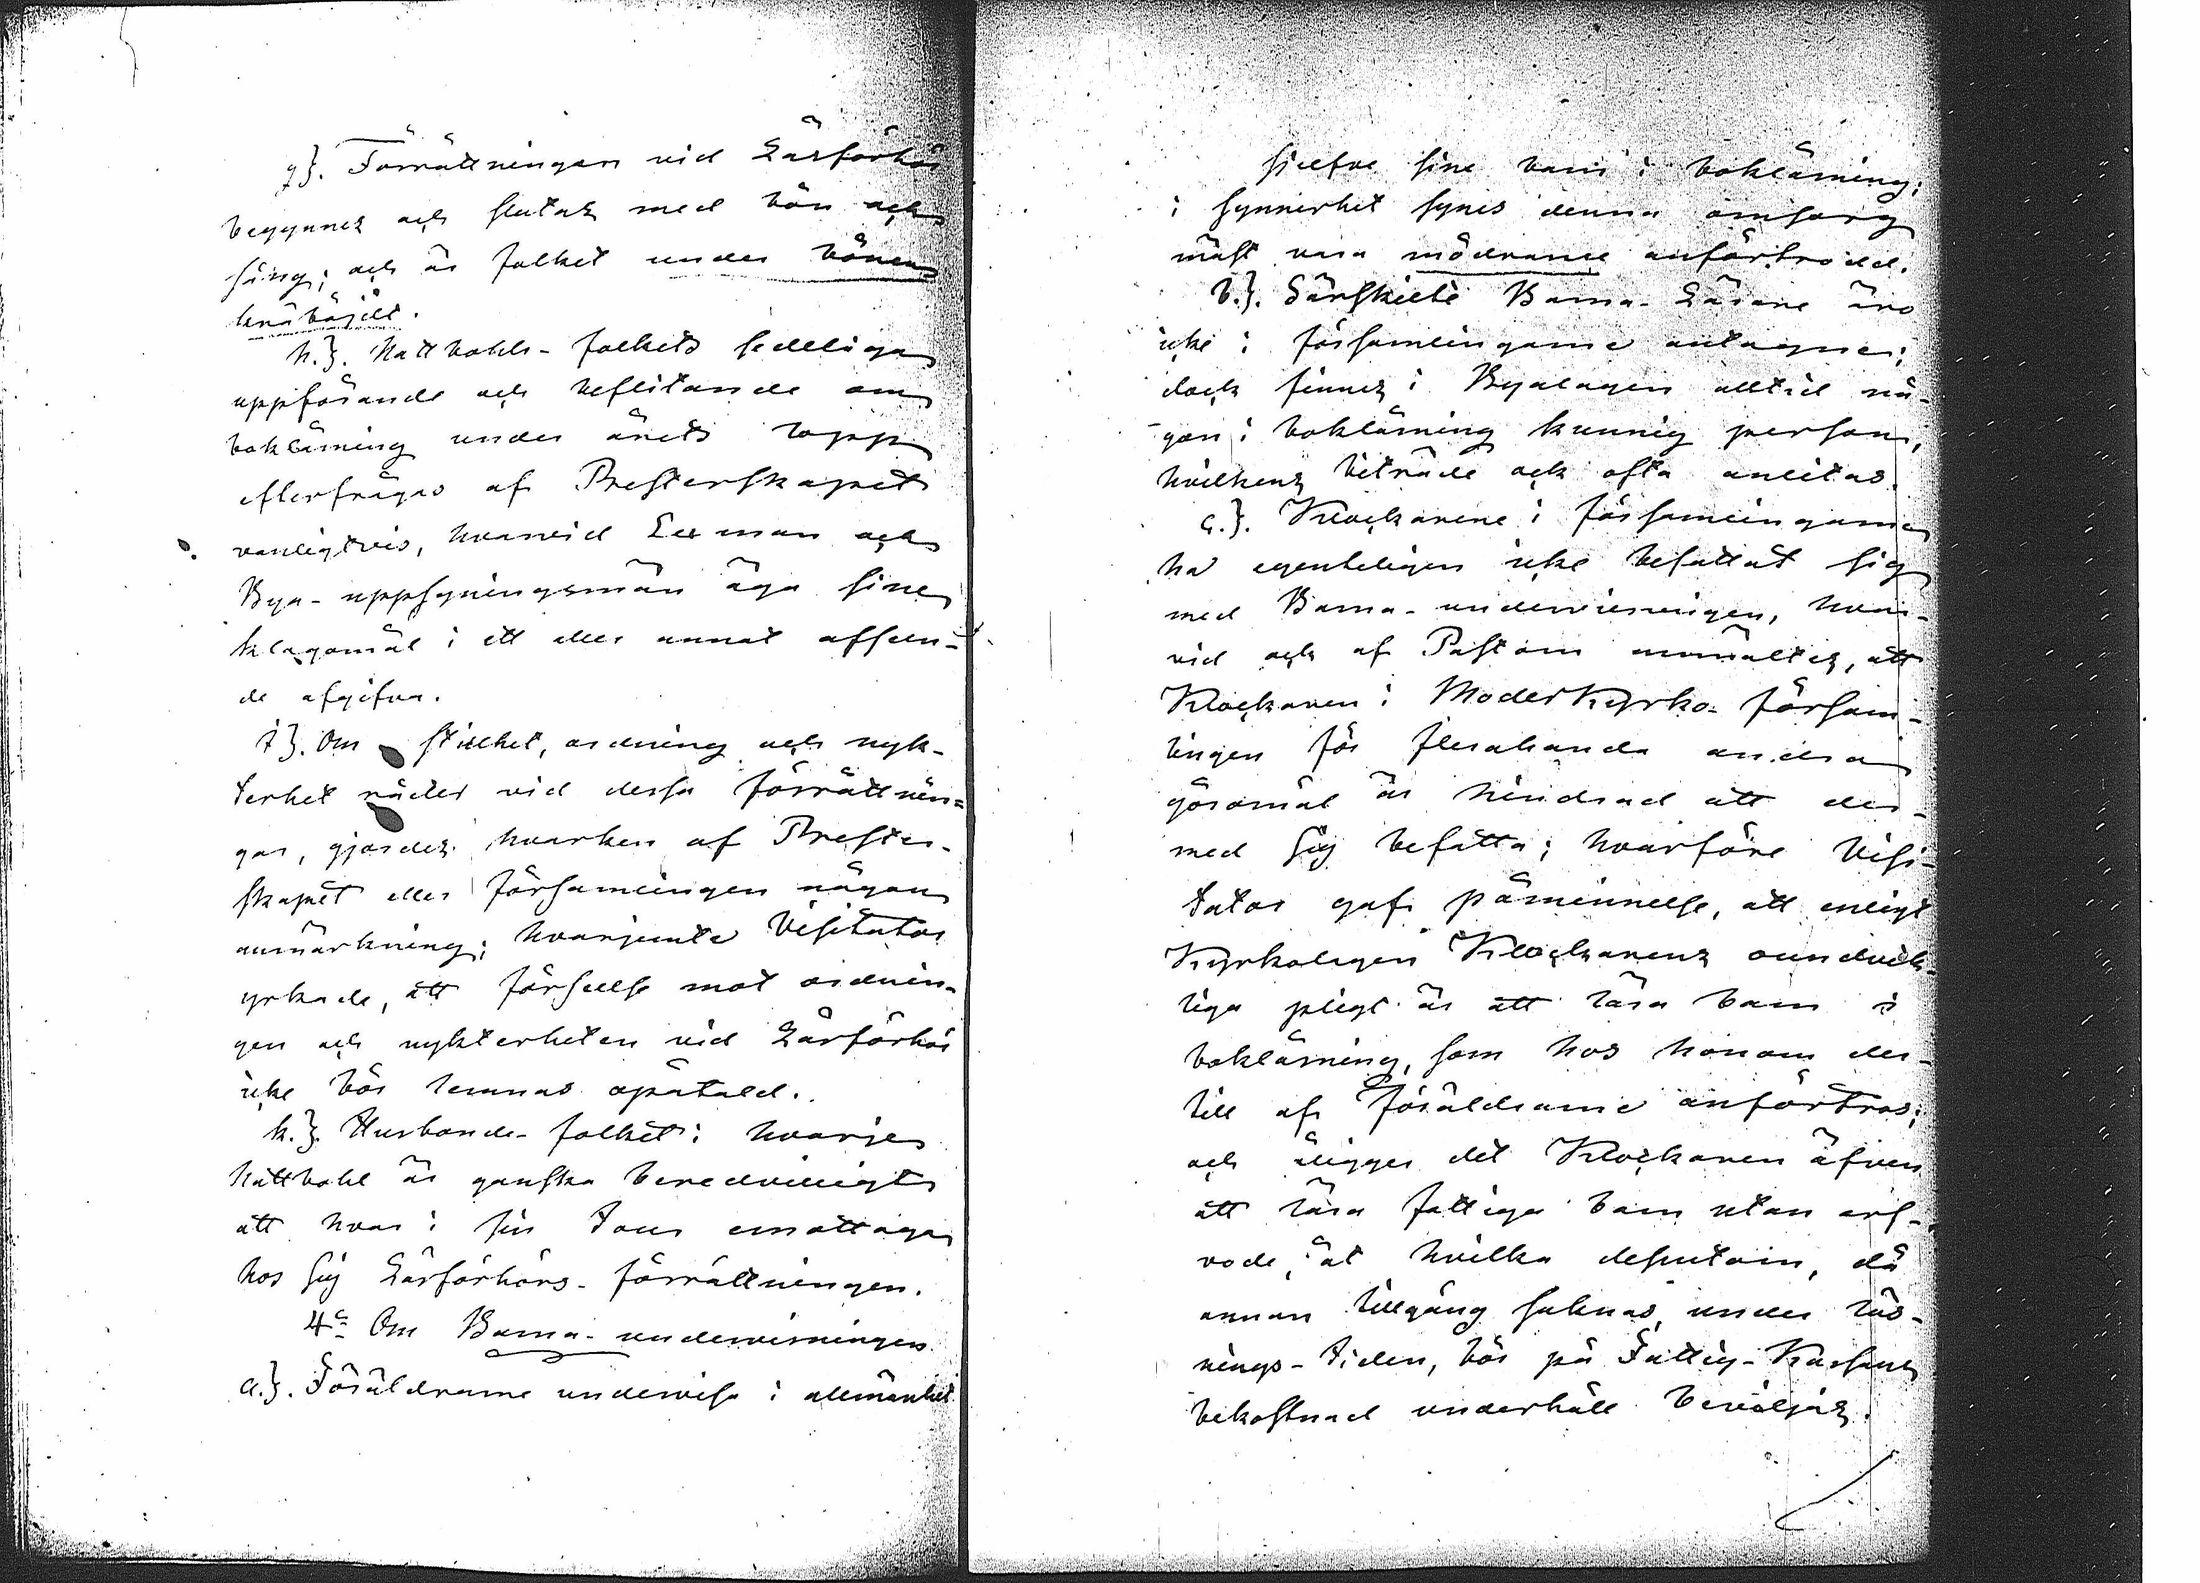 g}. Förrättningen vid Läsförhör
begynnes och slutas med bön och
sång; och är folket under bönen
knäböjdt.
h.}. Nattbohls-folkets sedeliga
uppförande och beflitande om
bokläsning under årets lopp
efterfrågas af Presterskapet
vanligtvis, hvarvid Lexman och
Bya-uppsyningsmän äga sine
klagomål i ett eller annat afseen-
de afgifva.
i}. Om stillhet, ordning och nyk-
terhet råder vid dessa förrättnin-
gar, gjordes hvarken af Prester-
skapet eller församlingen någon
anmärkning; hvarjemte Visitator
yrkade, att förseelse mot ordnin-
gen och nykterheten vid Läsförhör
icke bör lemnas opåtald.
k.}. Husbonde-folket i hvarje
Nattbohl är ganska beredvilligt
att hvar i sin tour emottaga
hos sig Läsförhörs-förrättningen.
4º Om Barna-undervisningen
a.}. Föräldrarne undervisa i allmänhet
sjelfve sine barn i bokläsning;
i synnerhet synes denna omsorg
mäst vara mödrarne anförtrodd.
b.}. Särskilte Barna-Lärare äro
icke i församlingarne antagne;
dock finnes i Byalagen alltid nå-
gon i bokläsning kunnig person,
hvilkens biträde ock ofta anlitas.
c.}. Klockarene i församlingarne
ha egenteligen icke befattat sig
med Barna-undervisningen, hvar-
vid ock af Pastorn anmältes, att
Klockaren i Moderkyrko-försam-
lingen för flerahanda andra
göromål är hindrad att der-
med sig befatta; hvarföre Visi-
tator gaf påminnelse, att enligt
Kyrkolagen Klockarens oundvik-
liga pligt är att lära barn i
bokläsning, som hos honom der-
till af föräldrarne anförtros;
och åligger det Klockaren äfven
att lära fattiga barn utan arf-
vode, åt hvilka dessutom, då
annan tillgång saknas, under läs-
nings-tiden, bör på Fattig-Kassans
bekostnad underhåll beviljas.